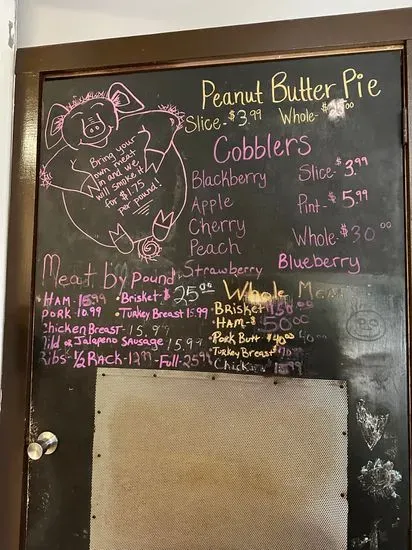 Peanut Butter Pie
Slice-$3.99 Whole-
Bring your
own meat
in and we
will smoke it
for $1.75
per pound!
Cobblers
Blackberry
Apple
Cherry
Peach
Strawberry
Blueberry
Slice-$3.99
Pint-$5.99
Whole-$30.00
Meat by Pound
HAM-15.99
Pork 10.99
Chicken Breast-15.99
Mild or Jalapeno Sausage 15.99
Ribs-1/2 RACK-12.99-Full-25.99
•Brisket-$25.00
•Turkey Breast 15.99
Whole
•Brisket
•HAM-$50.00
•Pork Butt $40.00
•Turkey Breast
•Chicken